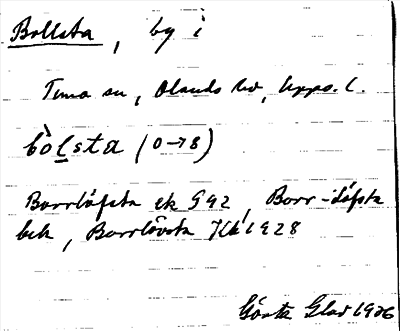 Bollsta, by i
Tuna sn, Olands hd, Upps. l.
bòlsta (0→8)
Borrlöfsta ek 992, Borr-löfsta
bek, Borrlövsta Jk 1928
Gösta Glad 1926